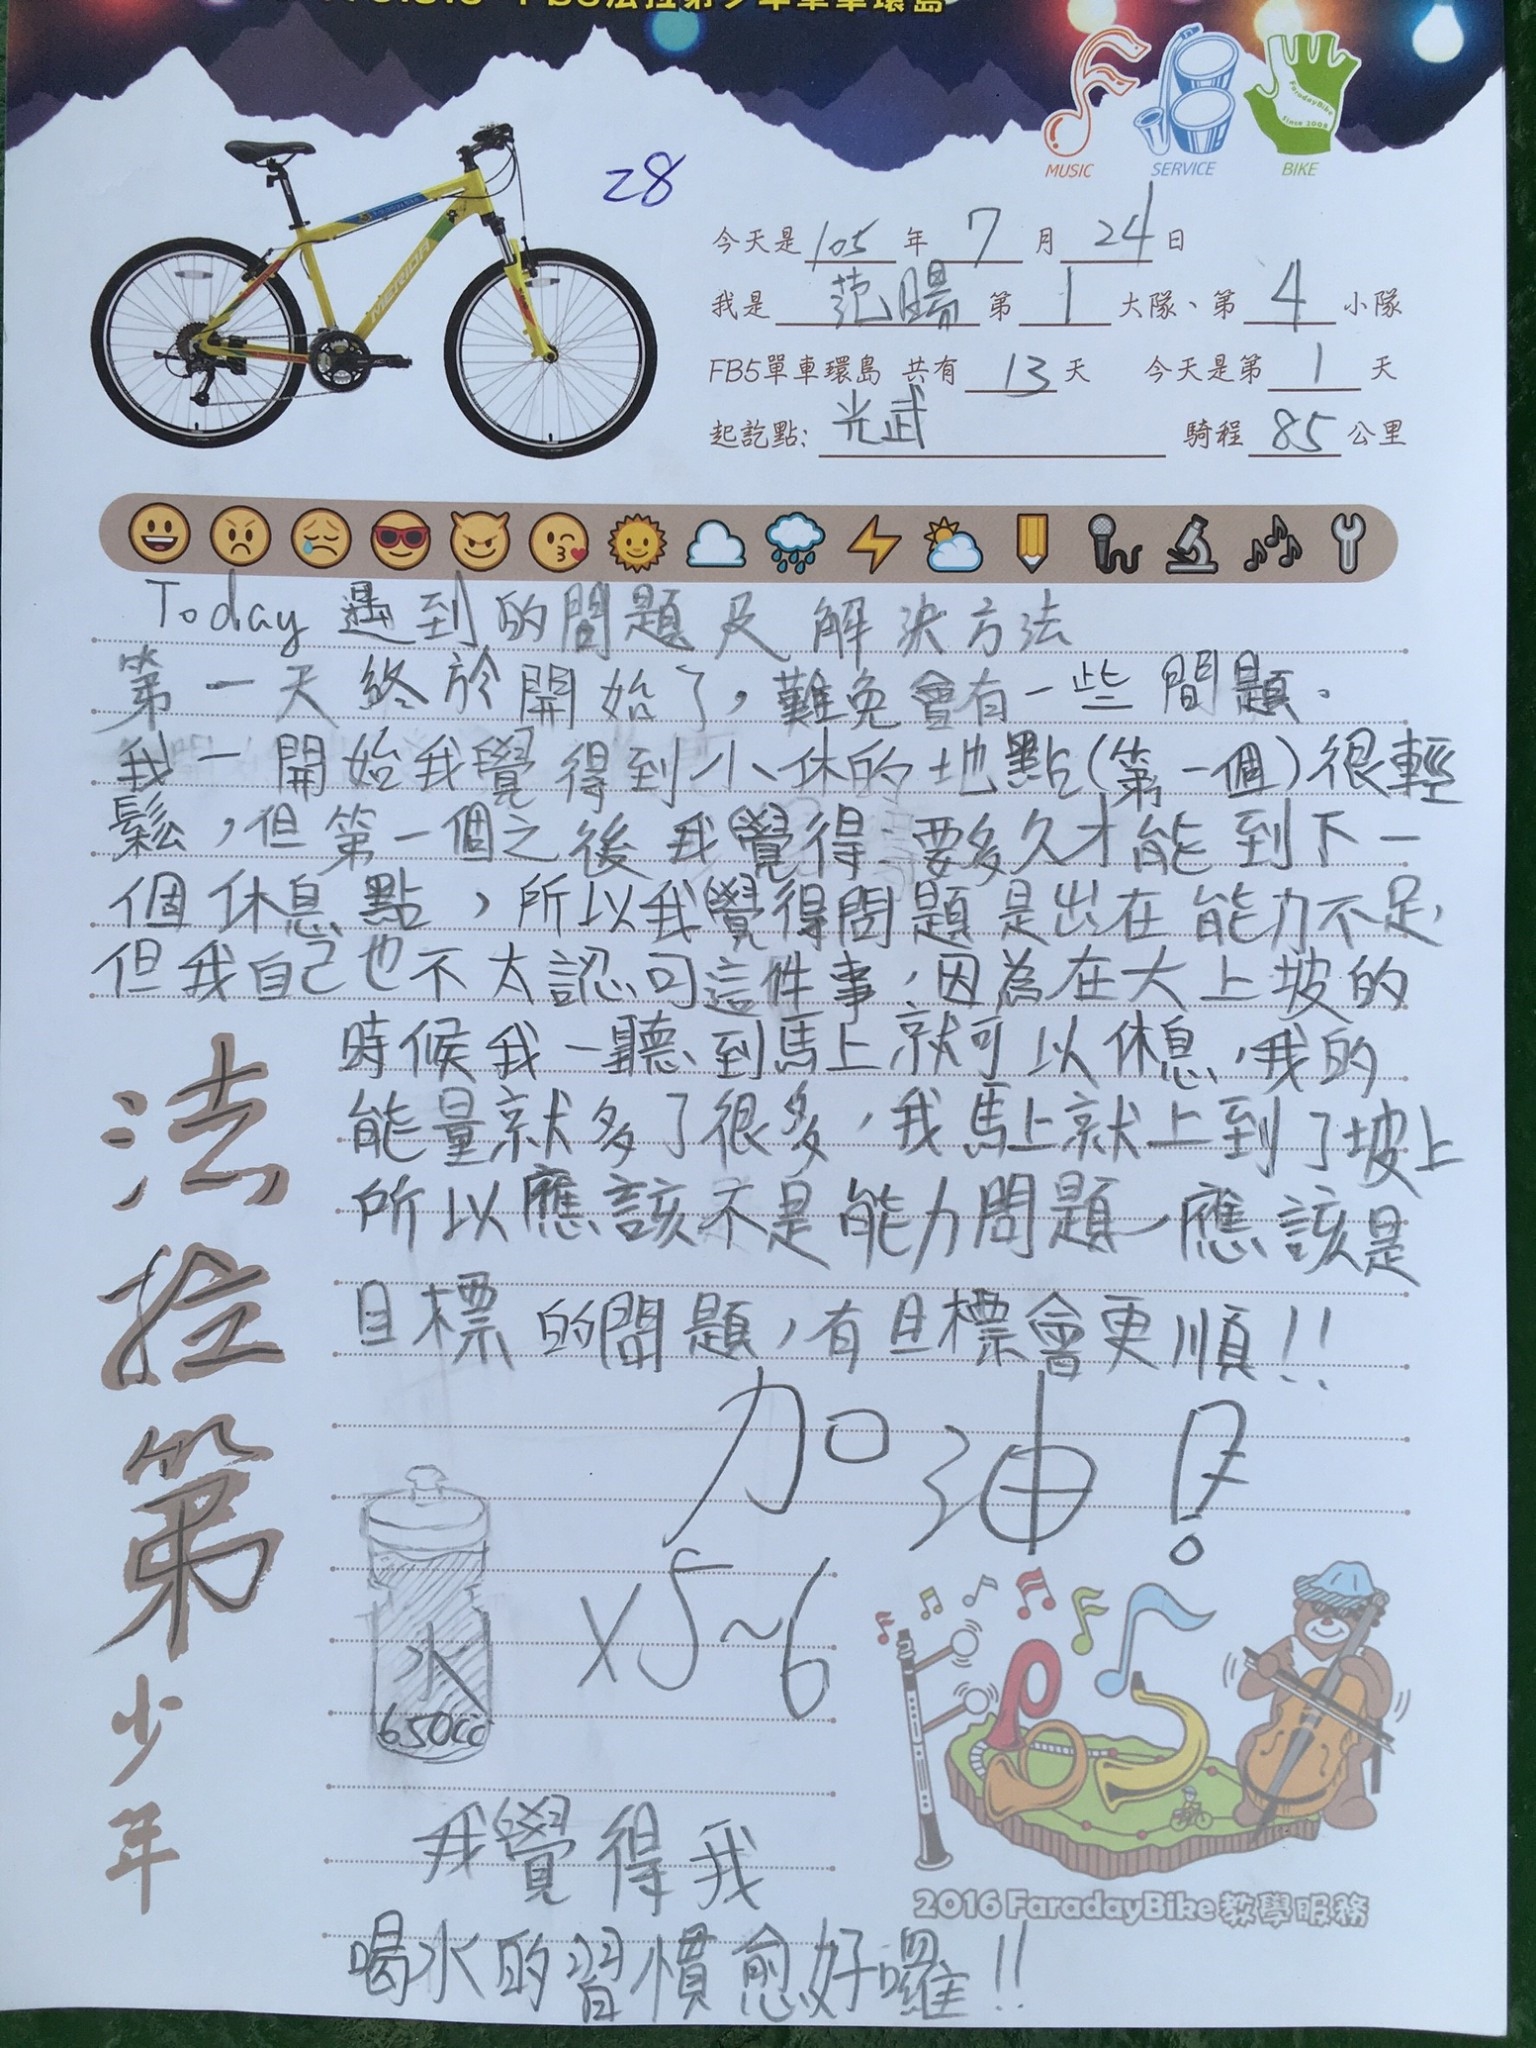 FB5法拉第少年單車環島
MUSIC SERVICE BIKE
FaradayBike
Since 2008
MERIDA
28
今天是105年7月24日
我是范暘第1大隊、第4小隊
FB5單車環島 共有13天 今天是第1天
起訖點:光武 騎程85公里
Today 遇到的問題及解決方法
第一天終於開始了,難免會有一些問題.
我一開始我覺得到小休的地點(第一個)很輕
鬆,但第一個之後我覺得:要多久才能到下一
個休息點,所以我覺得問題是出在能力不足,
但我自己也不太認同這件事,因為在大上坡的
時候我一聽到馬上就可以休息,我的
能量就多了很多,我馬上就上到了坡上
所以應該不是能力問題,應該是
目標的問題,有目標會更順!!
加油!
水
650cc
x5~6
我覺得我
喝水的習慣愈好囉!!
法拉第少年
2016 FaradayBike 教學服務